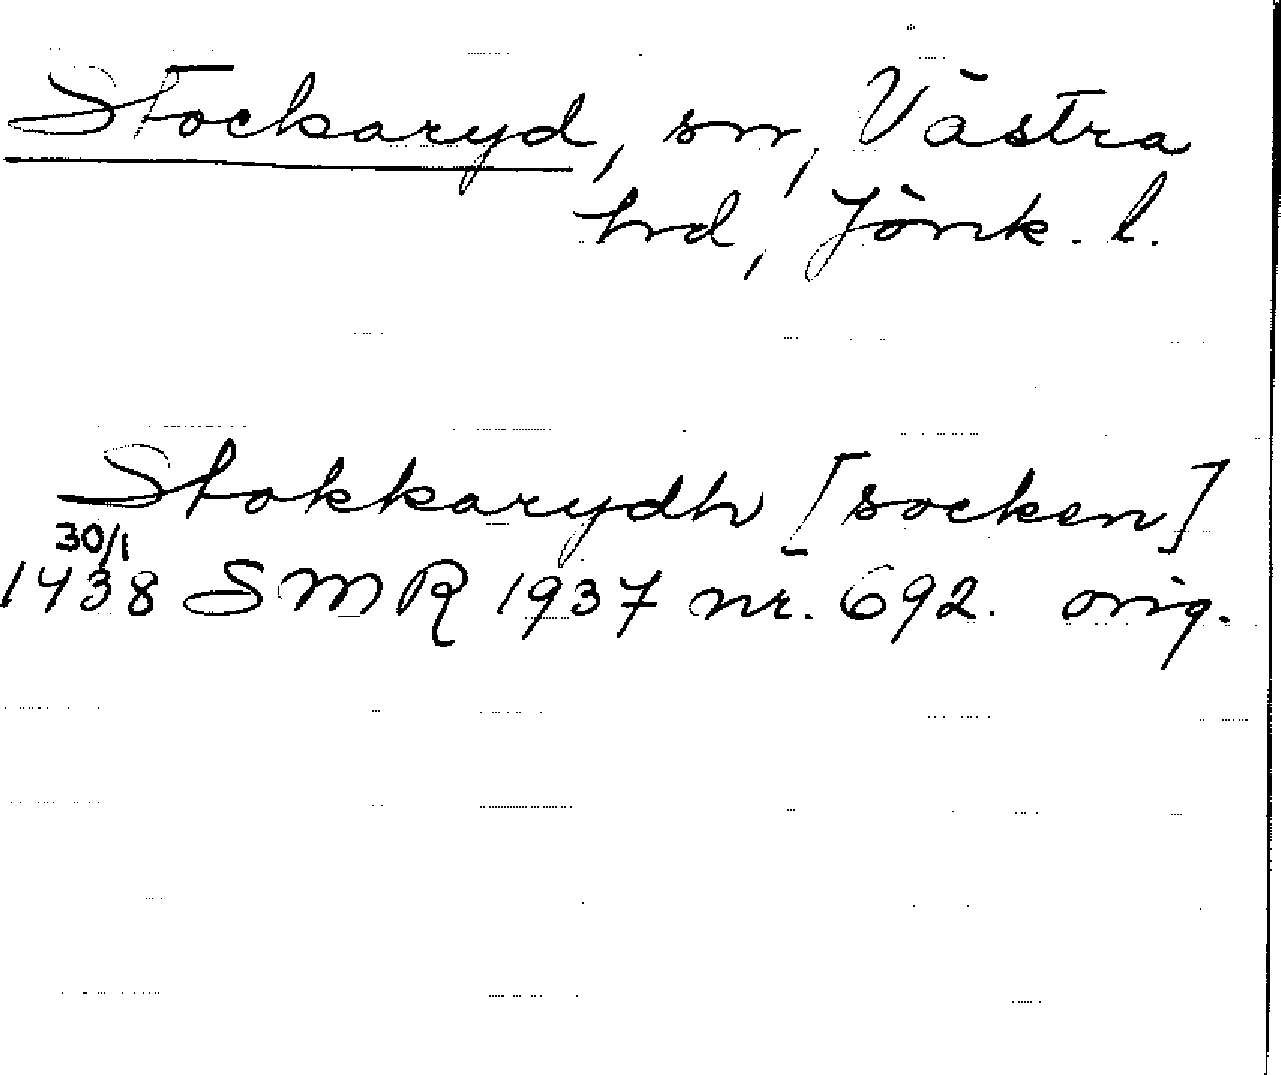 Stockaryd, sn, Västra
hrd, Jönk. l.
Stokkarydh [socken]
30/1
1438 SMR 1937 nr. 692. orig.